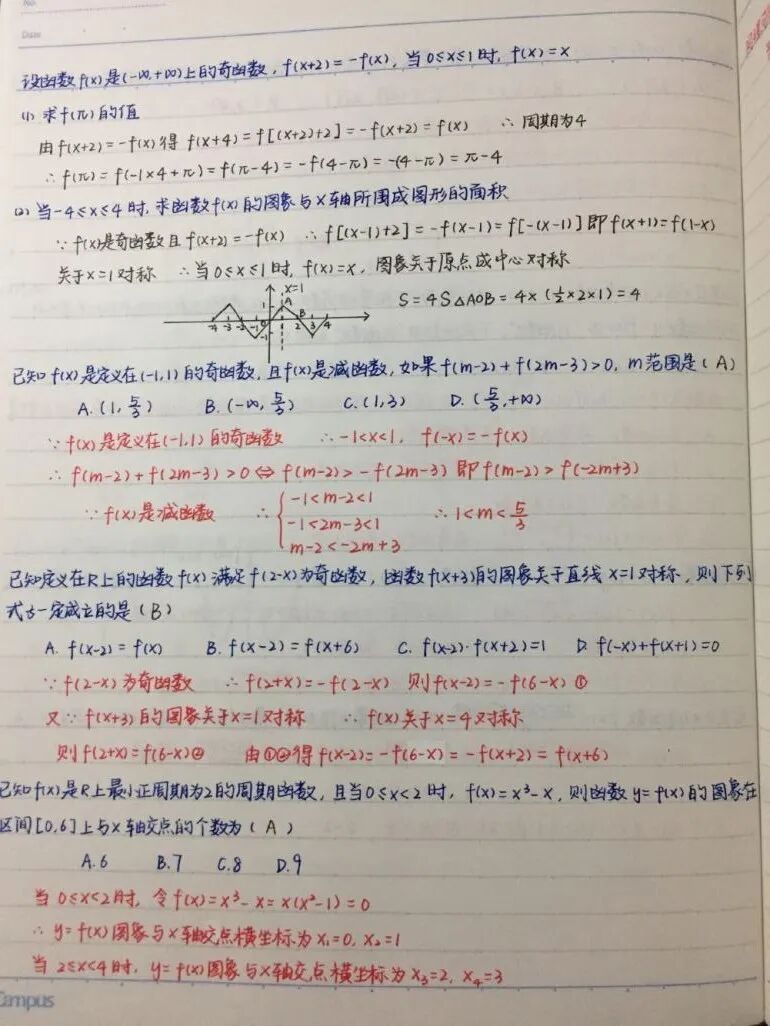 No.
Date
设函数f(x)是(-∞,+∞)上的奇函数, f(x+2)=-f(x), 当0≤x≤1时, f(x)=x
(1) 求f(π)的值
由f(x+2)=-f(x)得 f(x+4)=f[(x+2)+2]=-f(x+2)=f(x) ∴周期为4
∴f(π)=f(-1×4+π)=f(π-4)=-f(4-π)=-(4-π)=π-4
(2) 当-4≤x≤4时, 求函数f(x)的图象与x轴所围成图形的面积
∵f(x)是奇函数且f(x+2)=-f(x) ∴f[(x-1)+2]=-f(x-1)=f[-(x-1)]即f(x+1)=f(1-x)
关于x=1对称 ∴当0≤x≤1时, f(x)=x, 图象关于原点成中心对称
x=1
1 A S=4S△AOB=4×(½×2×1)=4
-4 -3 -2 -1 0 B 2 3 4
-1
已知f(x)是定义在(-1,1)的奇函数, 且f(x)是减函数, 如果f(m-2)+f(2m-3)>0, m范围是(A)
A. (1, 5/3) B. (-∞, 5/3) C. (1,3) D. (5/3, +∞)
∵f(x)是定义在(-1,1)的奇函数 ∴-1<x<1, f(-x)=-f(x)
∴f(m-2)+f(2m-3)>0⇔f(m-2)>-f(2m-3)即f(m-2)>f(-2m+3)
-1<m-2<1
∵f(x)是减函数 ∴{ -1<2m-3<1 ∴1<m<5/3
m-2<-2m+3
已知定义在R上的函数f(x)满足f(2-x)为奇函数, 函数f(x+3)的图象关于直线x=1对称, 则下列
式子一定成立的是(B)
A. f(x-2)=f(x) B. f(x-2)=f(x+6) C. f(x-2)·f(x+2)=1 D. f(-x)+f(x+1)=0
∵f(2-x)为奇函数 ∴f(2+x)=-f(2-x) 则f(x-2)=-f(6-x)①
又∵f(x+3)的图象关于x=1对称 ∴f(x)关于x=4对称
则f(2+x)=f(6-x)② 由①②得f(x-2)=-f(6-x)=-f(x+2)=f(x+6)
已知f(x)是R上最小正周期为2的周期函数, 且当0≤x<2时, f(x)=x³-x, 则函数y=f(x)的图象在
区间[0,6]上与x轴交点的个数为(A)
A.6 B.7 C.8 D.9
当0≤x<2时, 令f(x)=x³-x=x(x²-1)=0
∴y=f(x)图象与x轴交点横坐标为x₁=0, x₂=1
当2≤x<4时, y=f(x)图象与x轴交点横坐标为x₃=2, x₄=3
Campus